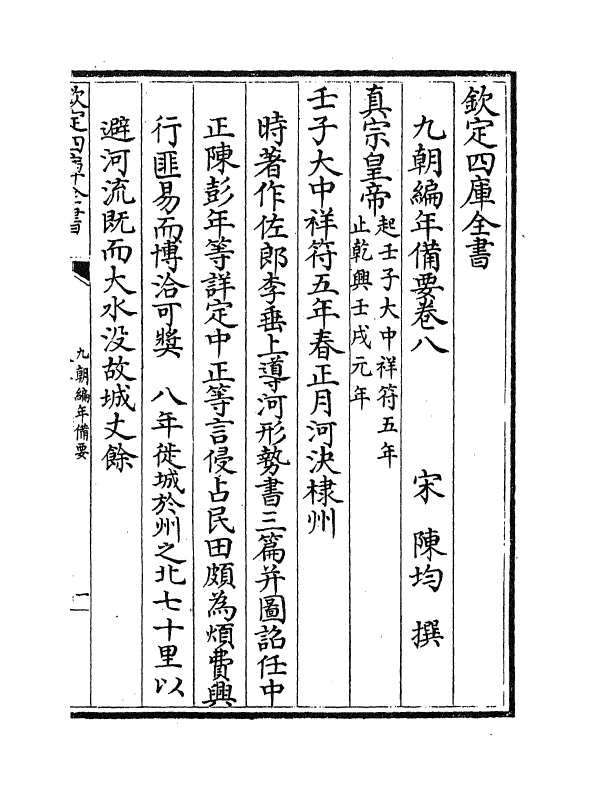 欽定四庫全書
九朝編年備要卷八
宋 陳均 撰
真宗皇帝起壬子大中祥符五年
止乾興壬戌元年
壬子大中祥符五年春正月河決棣州
時著作佐郎李垂上導河形勢書三篇并圖詔任中
正陳彭年等詳定中正等言侵占民田頗為煩費興
行匪易而博洽可奬 八年徙城於州之北七十里以
避河流既而大水没故城丈餘
欽定四庫全書
九朝編年備要
一